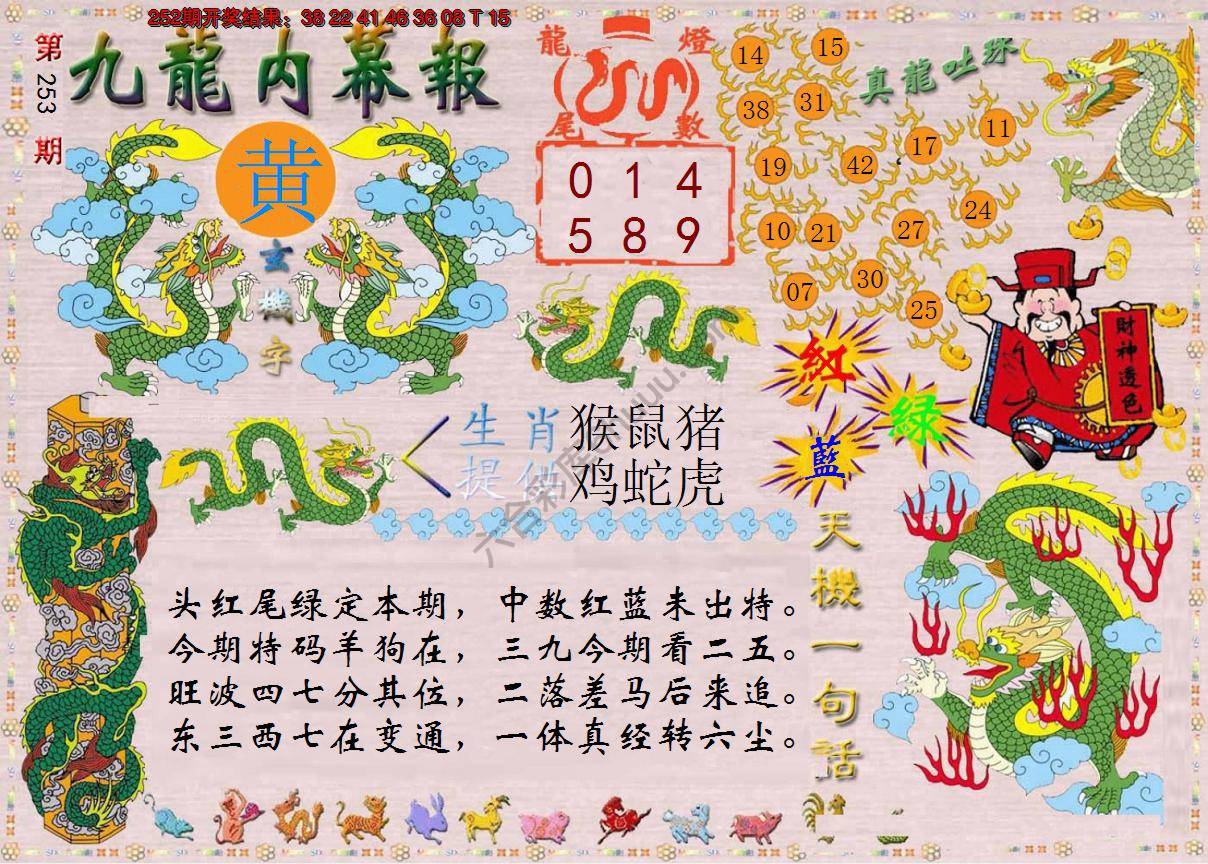 252期开奖结果：38 22 41 46 36 08 T 15
第253期
九龍内幕報
黄
玄機字
龍燈
尾數
0 1 4
5 8 9
真龍吐珠
14
15
38
31
19
42
17
11
10
21
27
24
07
30
25
紅
綠
藍
財神透色
生肖 猴鼠猪
提供 鸡蛇虎
天機一句話
头红尾绿定本期，中数红蓝未出特。
今期特码羊狗在，三九今期看二五。
旺波四七分其位，二落差马后来追。
东三西七在变通，一体真经转六尘。